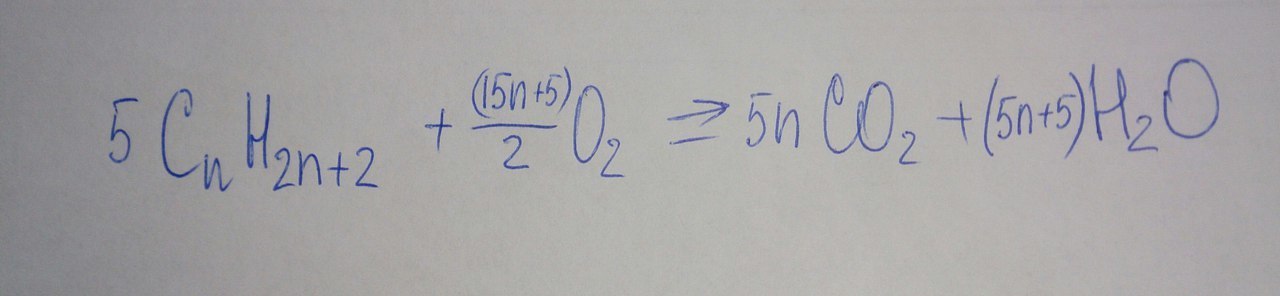 5 CₙH₂ₙ₊₂ + (15n+5)/2 O₂ ⇒ 5n CO₂ + (5n+5)H₂O